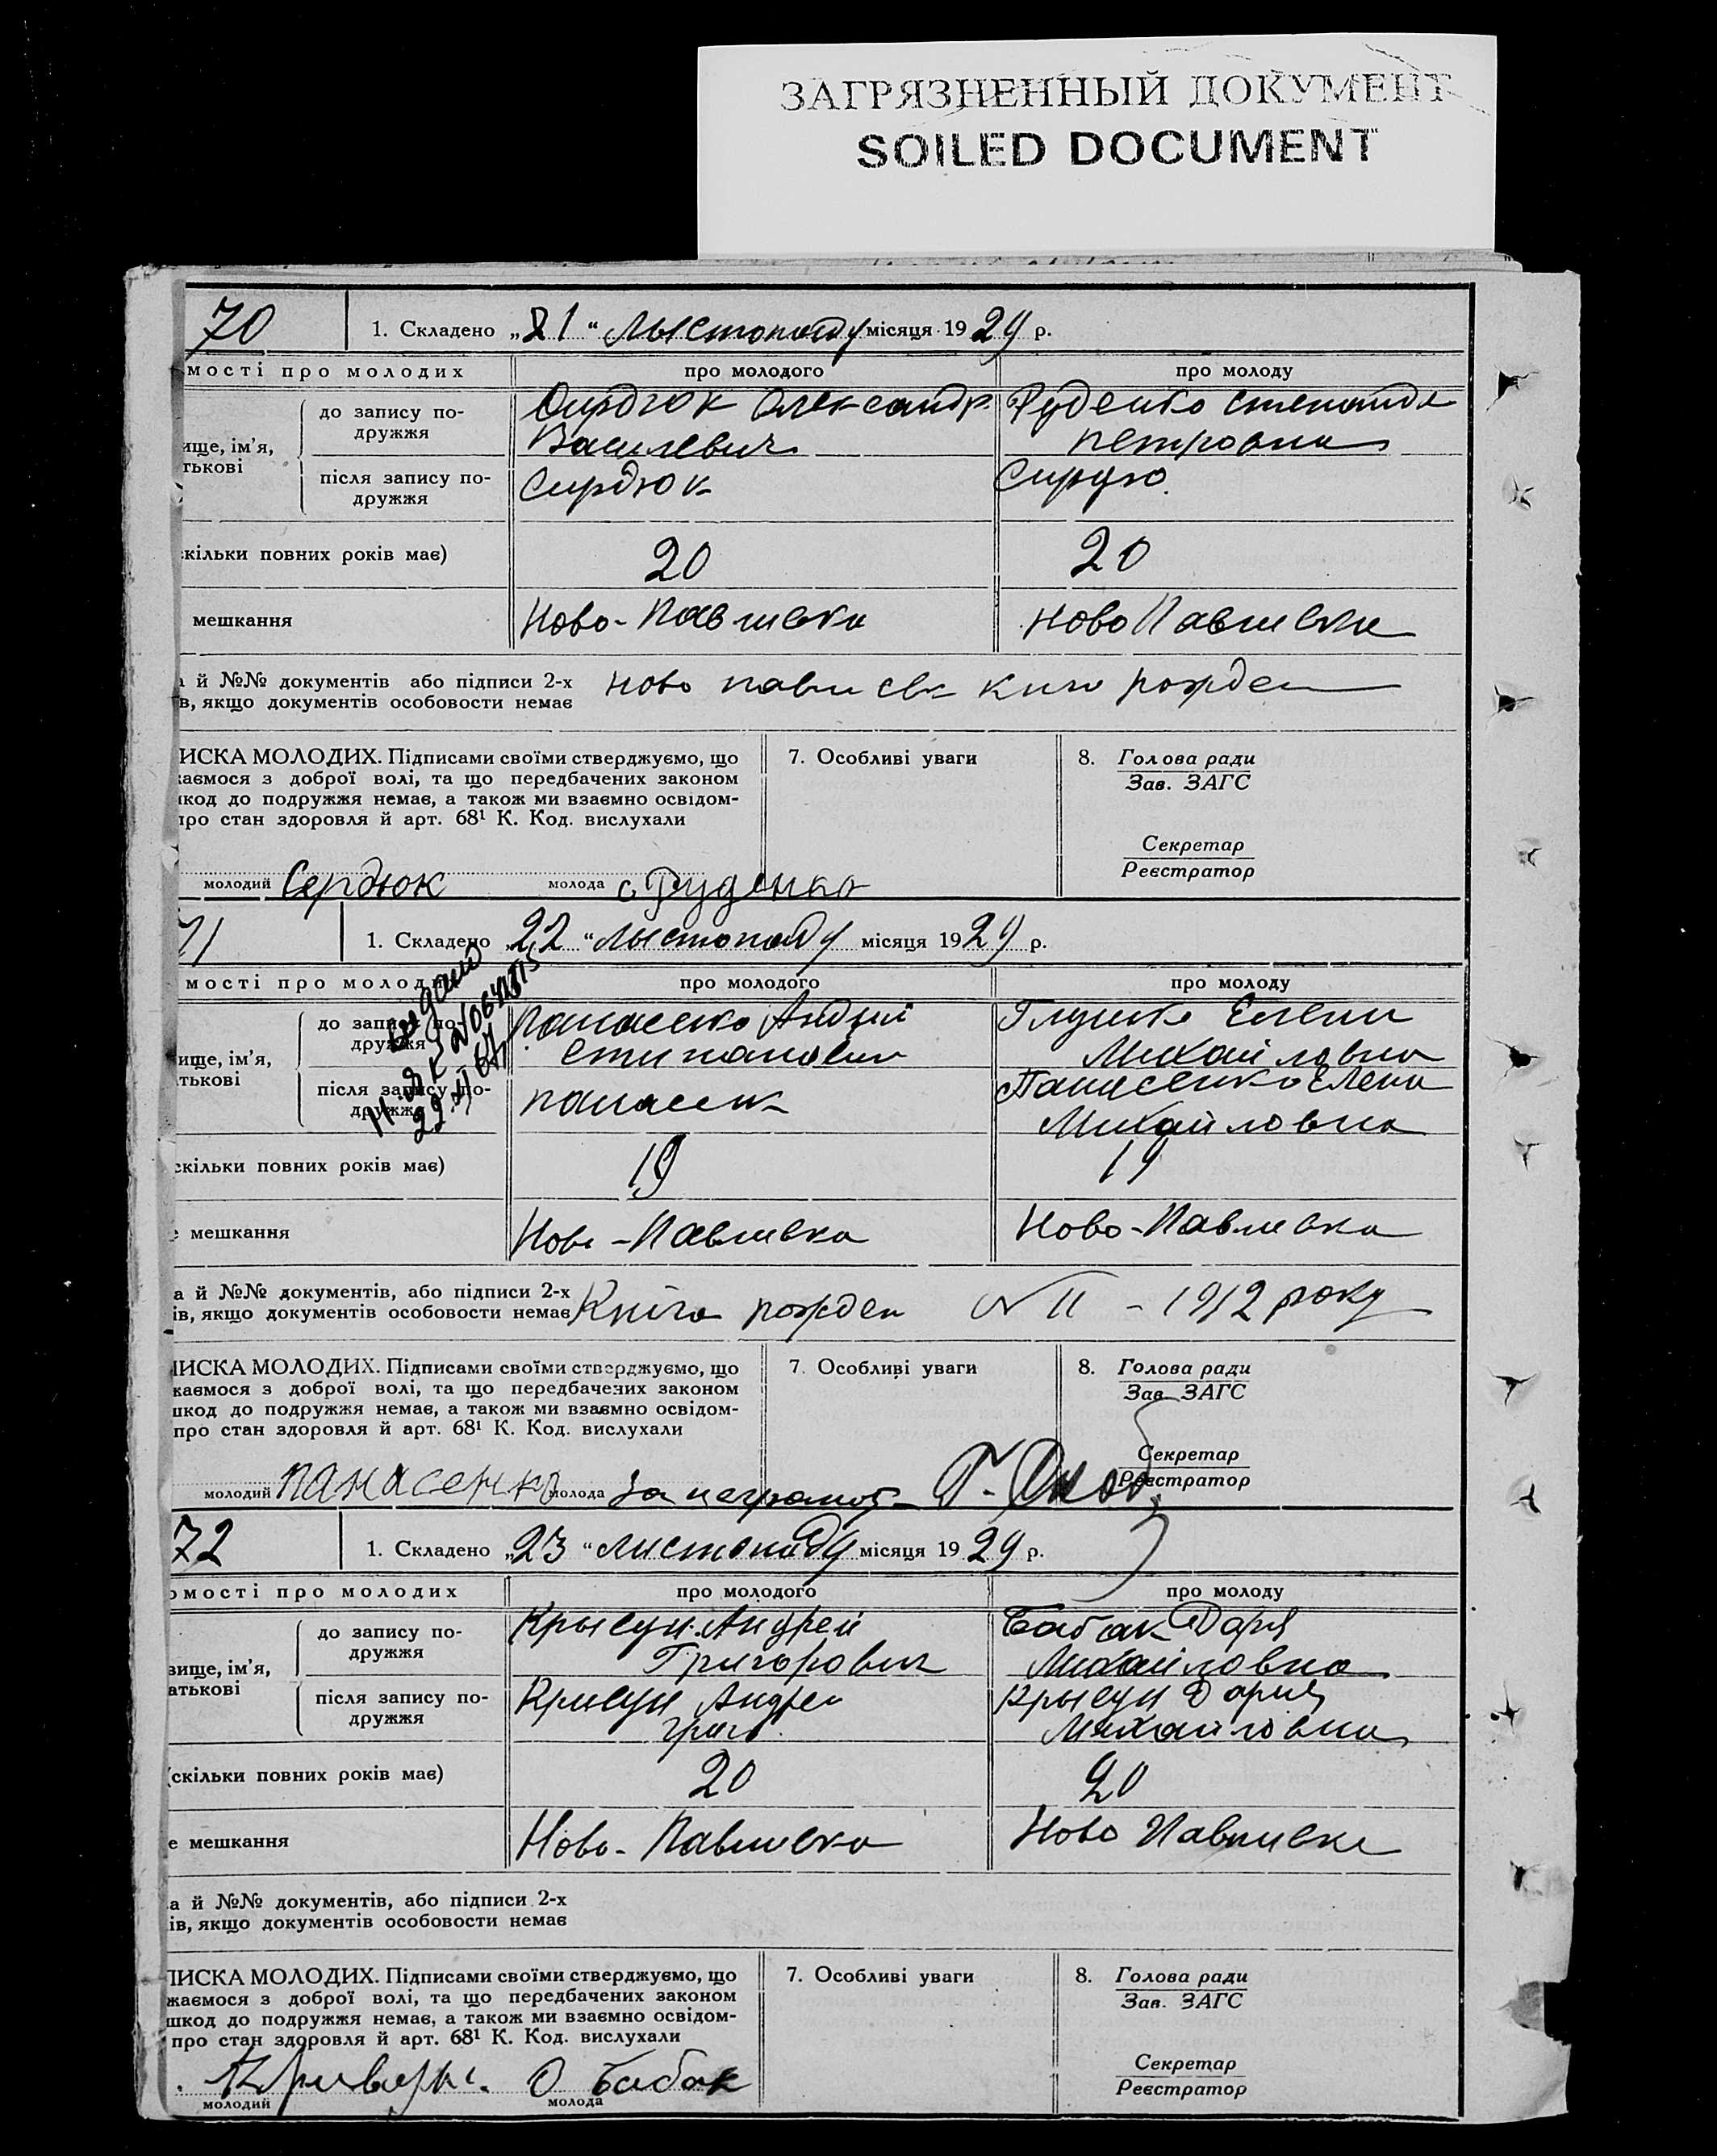 ЗАГРЯЗНЕННЫЙ ДОКУМЕНТ
SOILED DOCUMENT
70
1. Складено „21“ Лыстопаду місяця 1929 р.
мості про молодих
про молодого
про молоду
ище, ім’я,
тькові
до запису по-
дружжя
Сирдюк Олександр
Василевич
Руденко Степанида
Петровна
після запису по-
дружжя
Сирдюк
скільки повних років має)
20
20
мешкання
Ново-Павливка
Ново Павливка
й №№ документів або підписи 2-х
в, якщо документів особовости немає
ново павливск книг рожден
ИСКА МОЛОДИХ. Підписами своїми стверджуємо, що
каємося з доброї волі, та що передбачених законом
шкод до подружжя немає, а також ми взаємно освідом-
про стан здоровля й арт. 68¹ К. Код. вислухали
7. Особливі уваги
8. Голова ради
Зав. ЗАГС
Секретар
Реєстратор
молодий Сердюк
молода с Руденко
71
1. Складено „22“ Лыстопаду місяця 1929 р.
мості про молодих
про молодого
про молоду
ище, ім’я,
тькові
до запису по-
дружжя
Панасенко Андрий
Степанович
Глушко Елена
Михайловна
після запису по-
дружжя
Панасенк
Панасенко Елена
Михайловна
скільки повних років має)
19
19
е мешкання
Ново-Павливка
Ново-Павливка
а й №№ документів, або підписи 2-х
ів, якщо документів особовости немає
Кніга рожден N 11 – 1912 року
ПИСКА МОЛОДИХ. Підписами своїми стверджуємо, що
каємося з доброї волі, та що передбачених законом
шкод до подружжя немає, а також ми взаємно освідом-
про стан здоровля й арт. 68¹ К. Код. вислухали
7. Особливі уваги
8. Голова ради
Зав. ЗАГС
Секретар
Реєстратор
молодий Панасенко
молода За неграмот
72
1. Складено „23“ листопаду місяця 1929 р.
омості про молодих
про молодого
про молоду
вище, ім’я,
атькові
до запису по-
дружжя
Крысун Андрей
Григорович
Бабак Даря
Михайловна
після запису по-
дружжя
Крисун Андрей
Григ.
Крысун Дария
Михайловна
(скільки повних років має)
20
20
е мешкання
Ново-Павливка
Ново Павливка
а й №№ документів, або підписи 2-х
ів, якщо документів особовости немає
ПИСКА МОЛОДИХ. Підписами своїми стверджуємо, що
жаємося з доброї волі, та що передбачених законом
шкод до подружжя немає, а також ми взаємно освідом-
про стан здоровля й арт. 68¹ К. Код. вислухали
7. Особливі уваги
8. Голова ради
Зав. ЗАГС
Секретар
Реєстратор
Бабак
молодий
молода